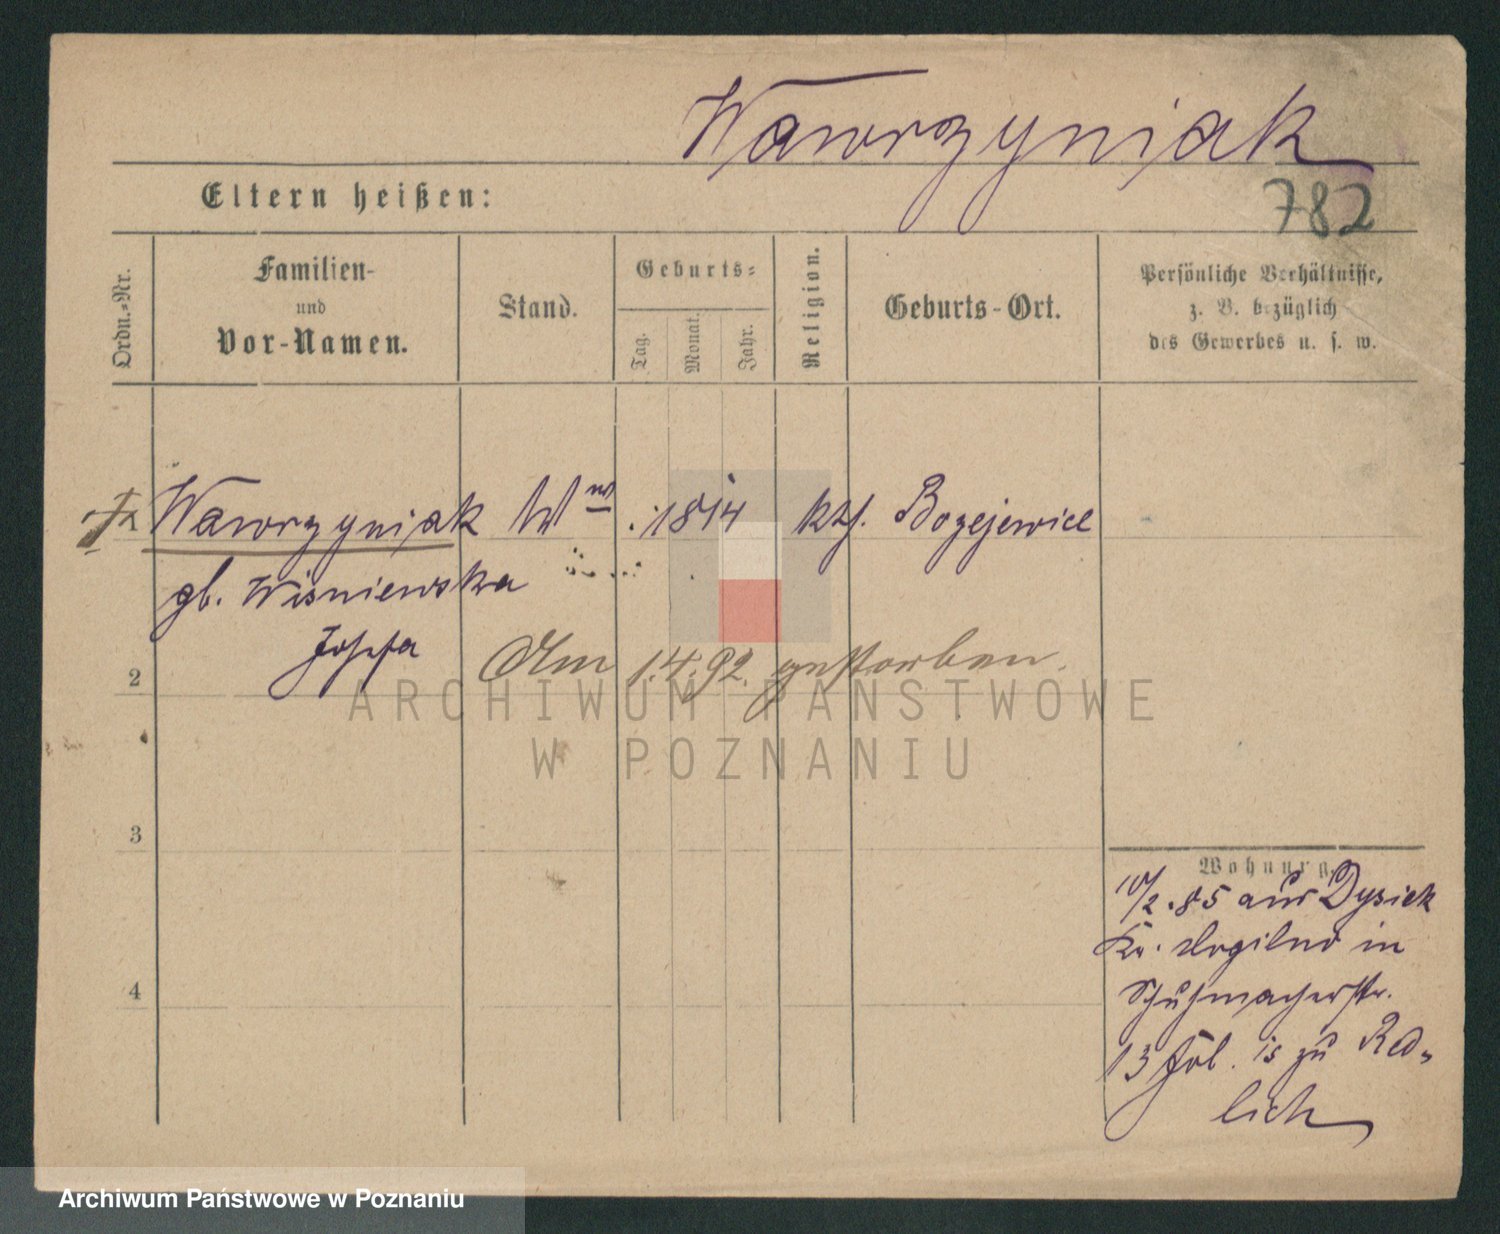 Wawrzyniak
782
Eltern heißen:
Ordn.-Nr.
Familien-
und
Vor-Namen.
Stand.
Geburts-
Tag.
Monat.
Jahr.
Religion.
Geburts-Ort.
Persönliche Verhältnisse,
z. B. bezüglich
des Gewerbes u. s. w.
Wawrzyniak Ww 1814 kth. Bozejewice
gb. Wisniewska
Josefa
2 Am 1.4.92. gestorben.
ARCHIWUM PAŃSTWOWE
W POZNANIU
3
4
Wohnung.
10/2.85 aus Dysiek
Kr. Mogilno in
Schuhmacherstr.
13 is zu Red-
lich
Archiwum Państwowe w Poznaniu